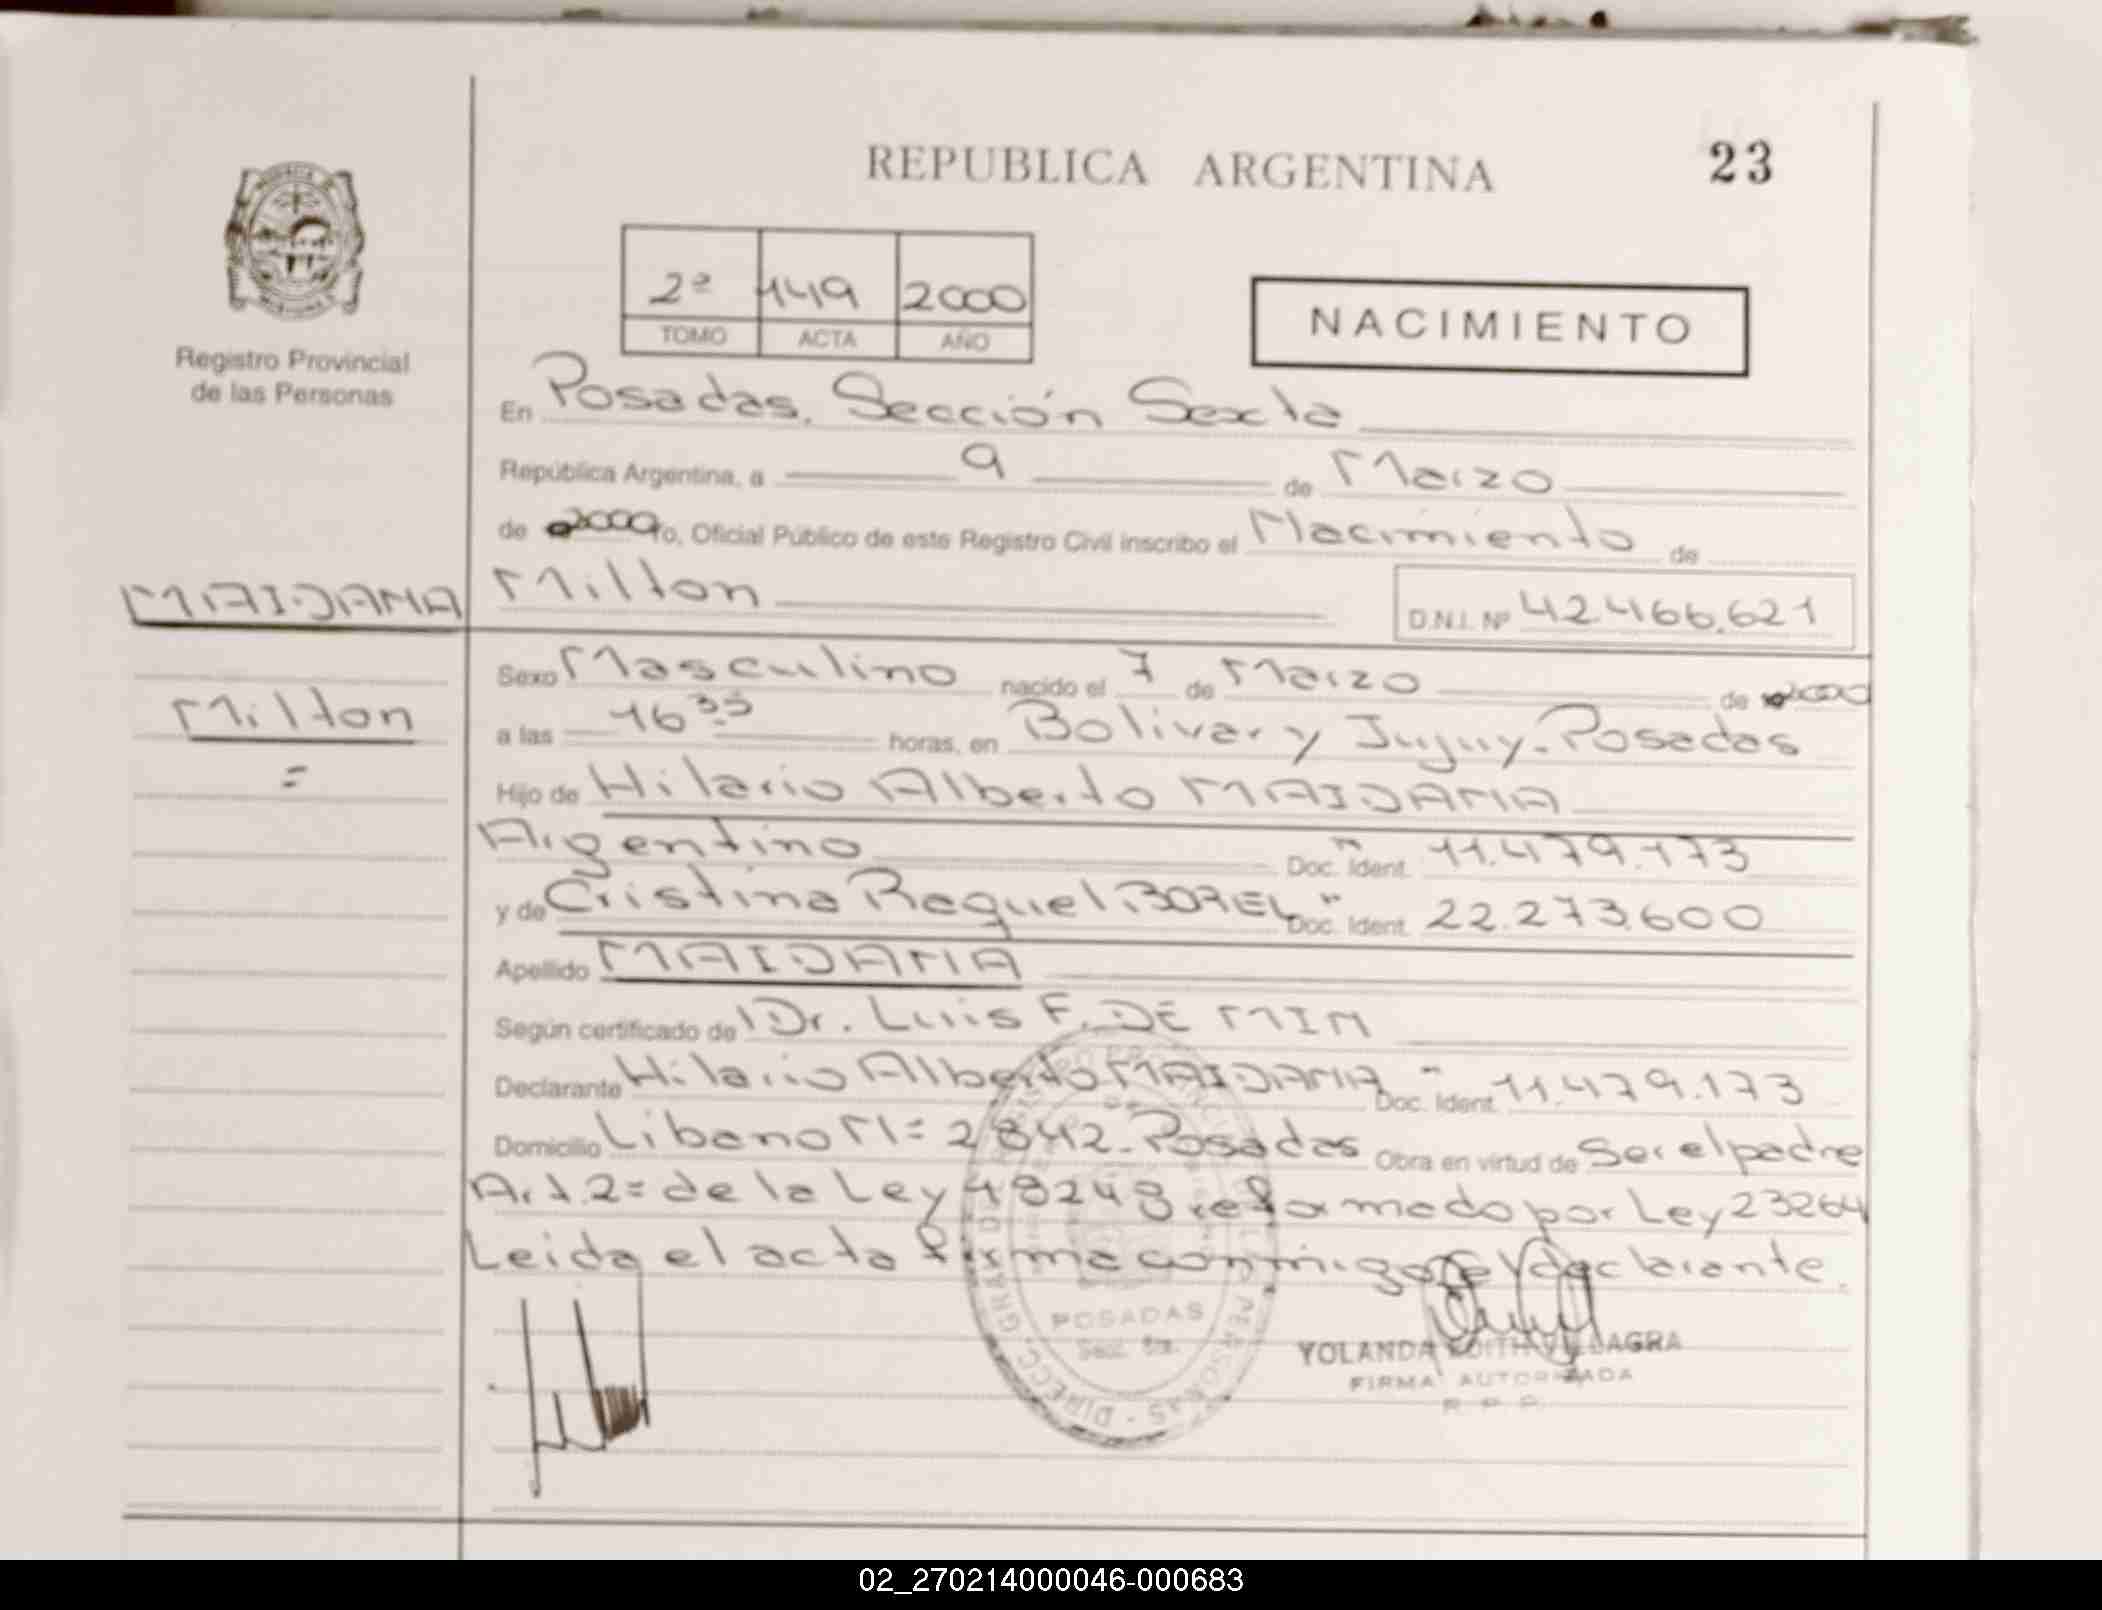 REPUBLICA ARGENTINA
23
2º 449 2000
TOMO ACTA AÑO
NACIMIENTO
Registro Provincial
de las Personas
En Posadas. Sección Sexta
República Argentina, a 9 de Marzo
de 2000 yo, Oficial Público de este Registro Civil inscribo el Nacimiento de
MAIDANA
Milton
D.N.I. Nº 42.466.621
Sexo Masculino nacido el 7 de Marzo de 2000
Milton
=
a las 16 35 horas, en Bolivar y Jujuy. Posadas
Hijo de Hilario Alberto MAIDANA
Argentino Doc. Ident. 11.479.173
y de Cristina Raquel Doc. Ident. 22.273.600
Apellido MAIDANA
Según certificado de Dr. Luis F. DE MIN
Declarante Hilario Alberto MAIDANA Doc. Ident. 11.479.173
Domicilio Libano Nº 2842. Posadas Obra en virtud de Ser el padre
Art. 2º de la Ley 18248 reformado por Ley 23264
Leida el acta firma conmigo el declarante.
POSADAS
Secc. 6ta.
YOLANDA EDITH VILLAGRA
FIRMA AUTORIZADA
R. P. P.
02_270214000046-000683